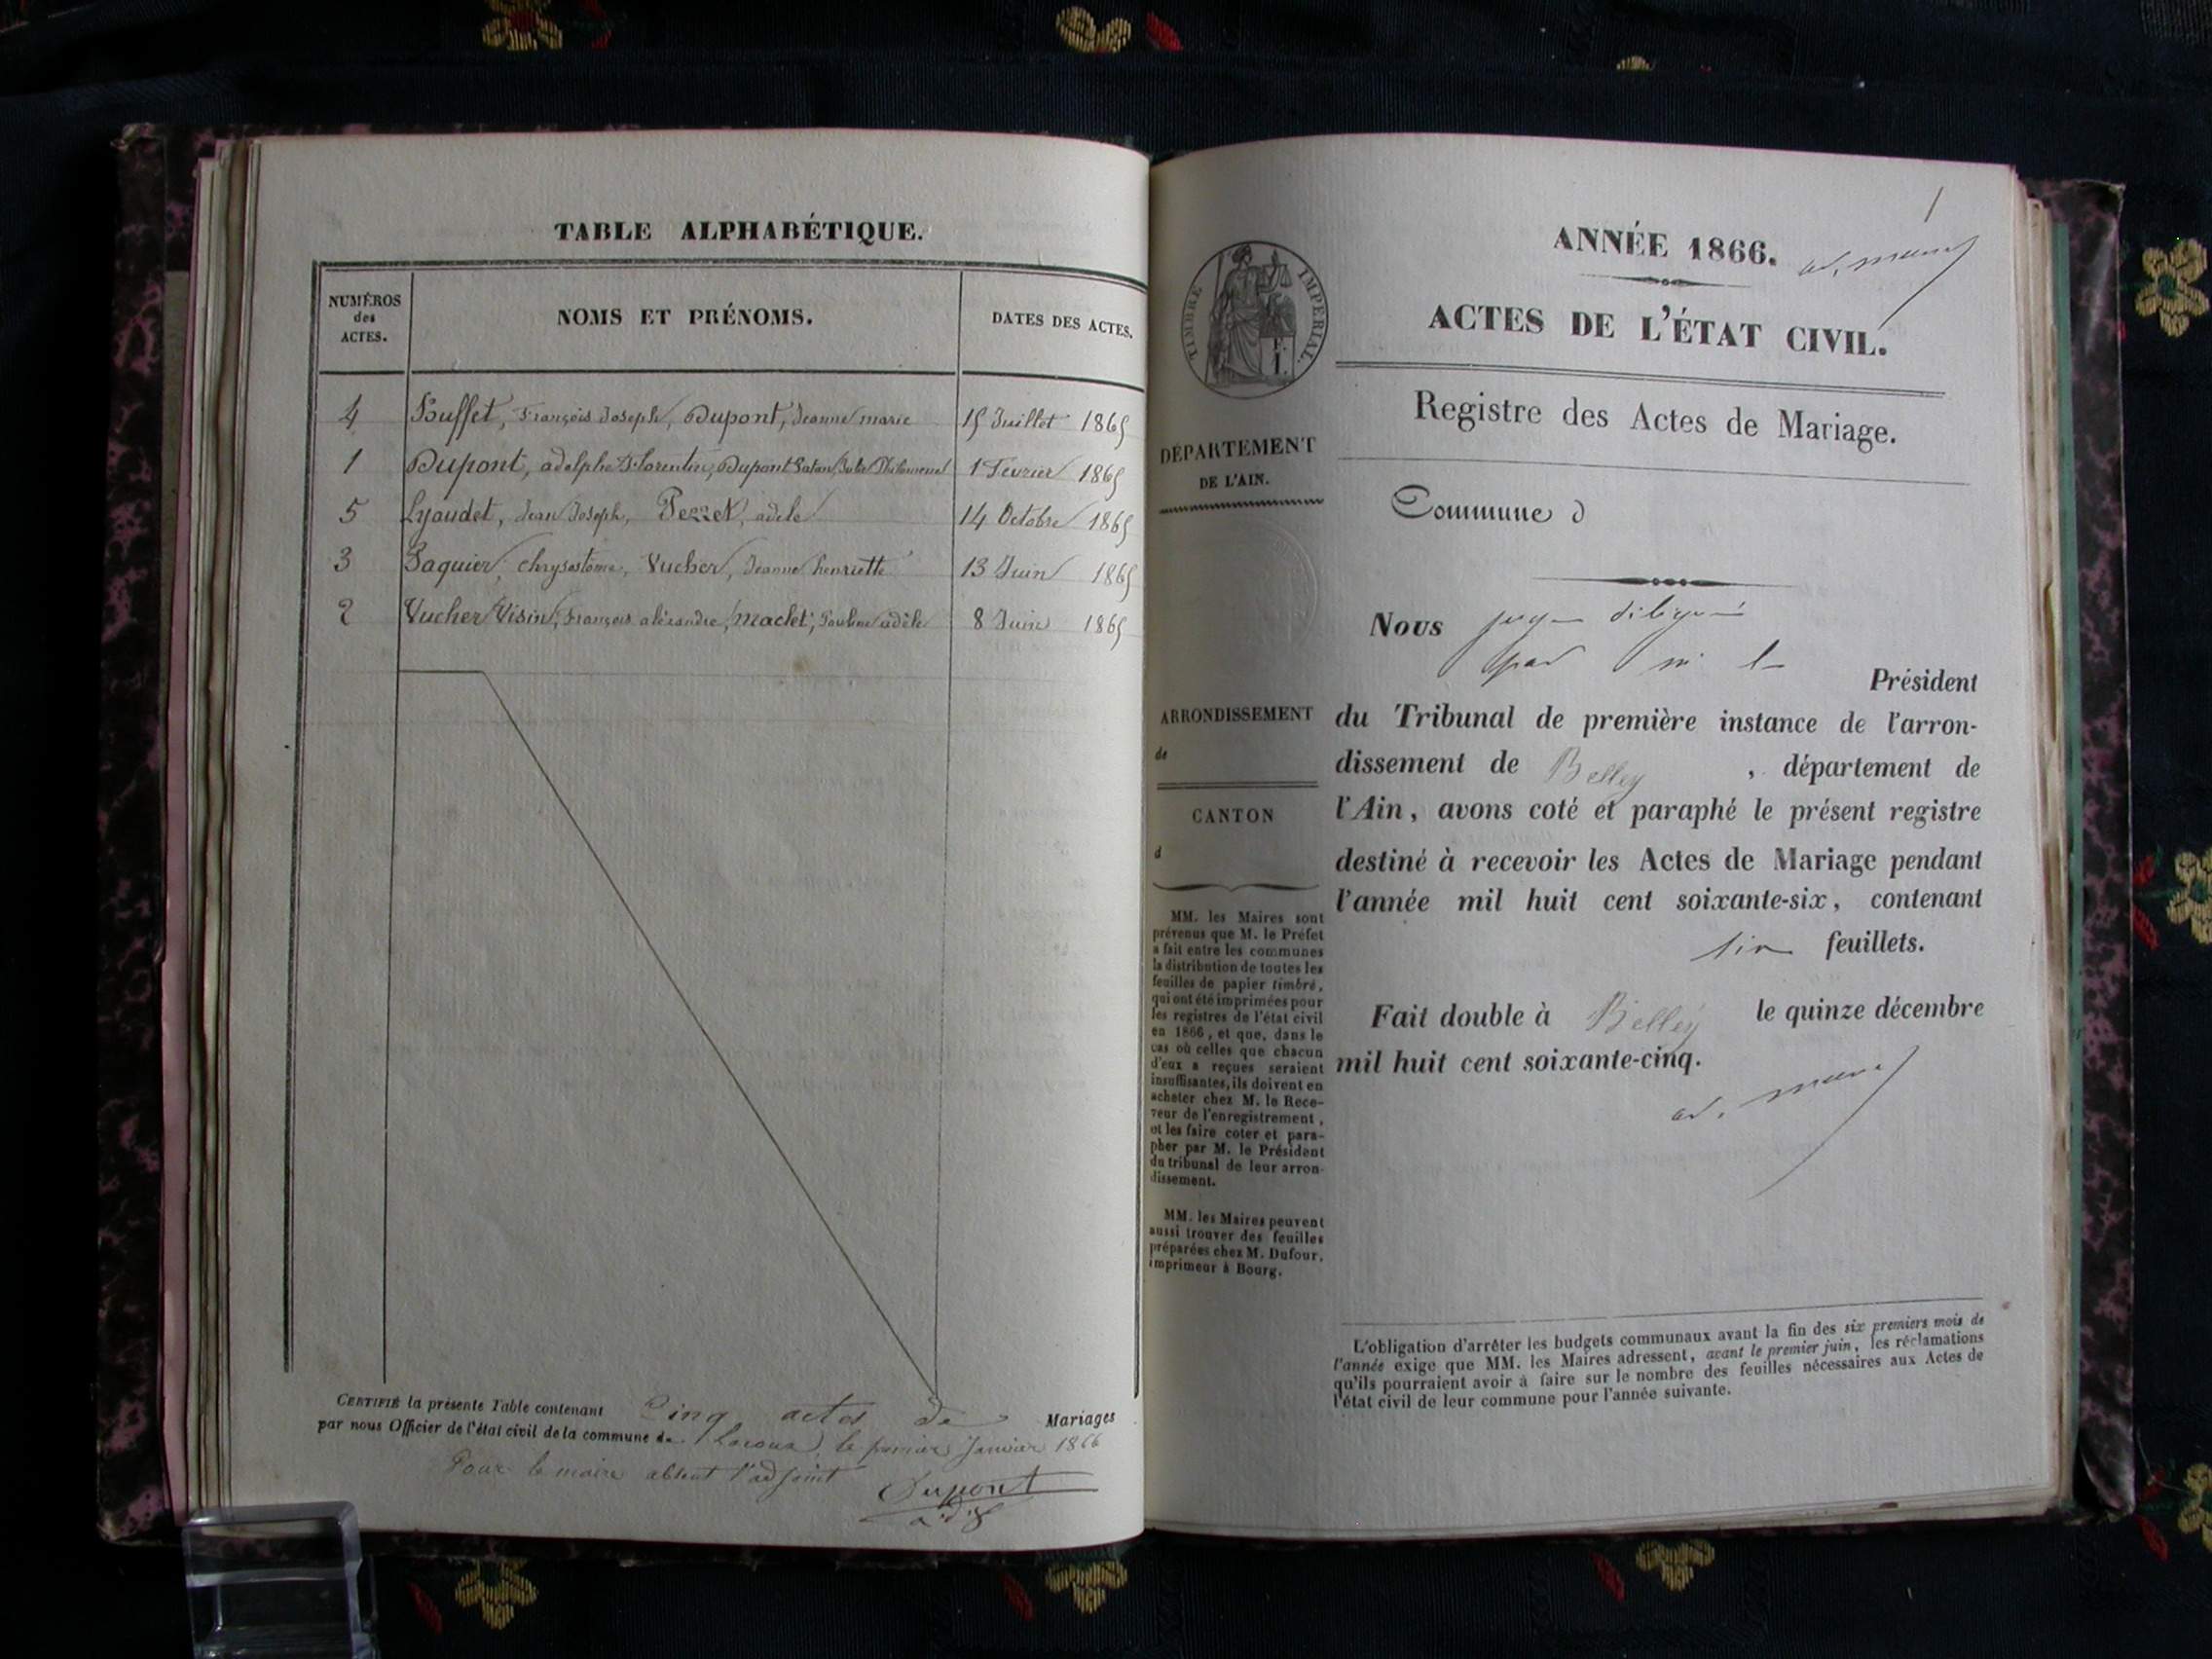 TABLE ALPHABÉTIQUE.
NUMÉROS
des
ACTES.
NOMS ET PRÉNOMS.
DATES DES ACTES.
4 Buffet, François Joseph, Dupont, Jeanne marie 15 Juillet 1865
1 Dupont, adolphe Florentin, Dupont Julie Philomene 1 Fevrier 1865
5 Lyaudet, Jean Joseph, Pezzet, adele 14 Octobre 1865
3 Paquier, chrysostome, Vucher, Jeanne henriette 13 Juin 1865
2 Vucher Visin, François aléxandre, maclet, Pauline adèle 8 Juin 1865
CERTIFIÉ la présente Table contenant Cinq actes de Mariages
par nous Officier de l'état civil de la commune de Lacoux, le premier Janvier 1866
Pour le maire absent l'adjoint
Dupont
adj
1
ANNÉE 1866.
ACTES DE L'ÉTAT CIVIL.
TIMBRE IMPÉRIAL.
Registre des Actes de Mariage.
DÉPARTEMENT
DE L'AIN.
Commune d
Nous juge délégué
par m. le
Président
ARRONDISSEMENT
de
CANTON
d
du Tribunal de première instance de l'arron-
dissement de Belley, département de
l'Ain, avons coté et paraphé le présent registre
destiné à recevoir les Actes de Mariage pendant
l'année mil huit cent soixante-six, contenant
six feuillets.
Fait double à Belley le quinze décembre
mil huit cent soixante-cinq.
MM. les Maires sont
prévenus que M. le Préfet
a fait entre les communes
la distribution de toutes les
feuilles de papier timbré,
qui ont été imprimées pour
les registres de l'état civil
en 1866, et que, dans le
cas où celles que chacun
d'eux a reçues seraient
insuffisantes, ils doivent en
acheter chez M. le Rece-
veur de l'enregistrement,
et les faire coter et para-
pher par M. le Président
du tribunal de leur arron-
dissement.
MM. les Maires peuvent
aussi trouver des feuilles
préparées chez M. Dufour,
imprimeur à Bourg.
L'obligation d'arrêter les budgets communaux avant la fin des six premiers mois de
l'année exige que MM. les Maires adressent, avant le premier juin, les réclamations
qu'ils pourraient avoir à faire sur le nombre des feuilles nécessaires aux Actes de
l'état civil de leur commune pour l'année suivante.